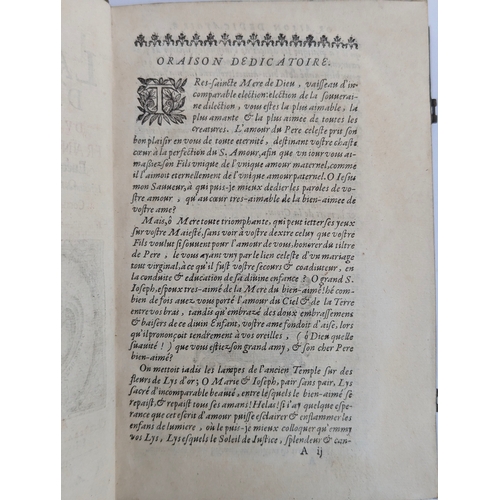 ORAISON DEDICATOIRE.
TRes-saincte Mere de Dieu, vaisseau d'in-
comparable election: election de la souuerai-
ne dilection, vous estes la plus aimable, la
plus amante & la plus aimee de toutes les
creatures. L'amour du Pere celeste prit son
bon plaisir en vous de toute eternité, destinant vostre chaste
cœur à la perfection du S. Amour, afin que vn iour vous ai-
massiez son Fils vnique de l'vnique amour maternel, comme
il l'aimoit eternellement de l'vnique amour paternel. O Iesu
mon Sauueur, à qui puis-je mieux dedier les paroles de vo-
stre amour, qu'au cœur tres-aimable de la bien-aimee de
vostre ame?
Mais, ô Mere toute triomphante, qui peut ietter ses yeux
sur vostre Maiesté, sans voir à vostre dextre celuy que vostre
Fils voulut si souuent pour l'amour de vous, honorer du tiltre
de Pere, le vous ayant vny par le lien celeste d'vn mariage
tout virginal, à ce qu'il fust vostre secours & coadiuteur, en
la conduite & education de sa diuine enfance? O grand S.
Ioseph, espoux tres-aimé de la Mere du bien-aimé! hé com-
bien de fois auez vous porté l'amour du Ciel & de la Terre
entre vos bras, tandis qu'embrazé des doux embrassemens
& baisers de ce diuin Enfant, vostre ame fondoit d'aise, lors
qu'il prononçoit tendrement à vos oreilles, (ô Dieu quelle
suauité!) que vous estiez son grand amy, & son cher Pere
bien-aimé?
On mettoit iadis les lampes de l'ancien Temple sur des
fleurs de Lys d'or; O Marie & Ioseph, pair sans pair, Lys
sacré d'incomparable beauté, entre lesquels le bien-aimé se
repaist, & repaist tous ses amans! Helas! si i'ay quelque espe-
rance que cet escrit d'amour puisse esclairer & enflammer les
enfans de lumiere, où le puis-je mieux colloquer qu'emmy
vos Lys, Lys esquels le Soleil de Iustice, splendeur & can-
A ij